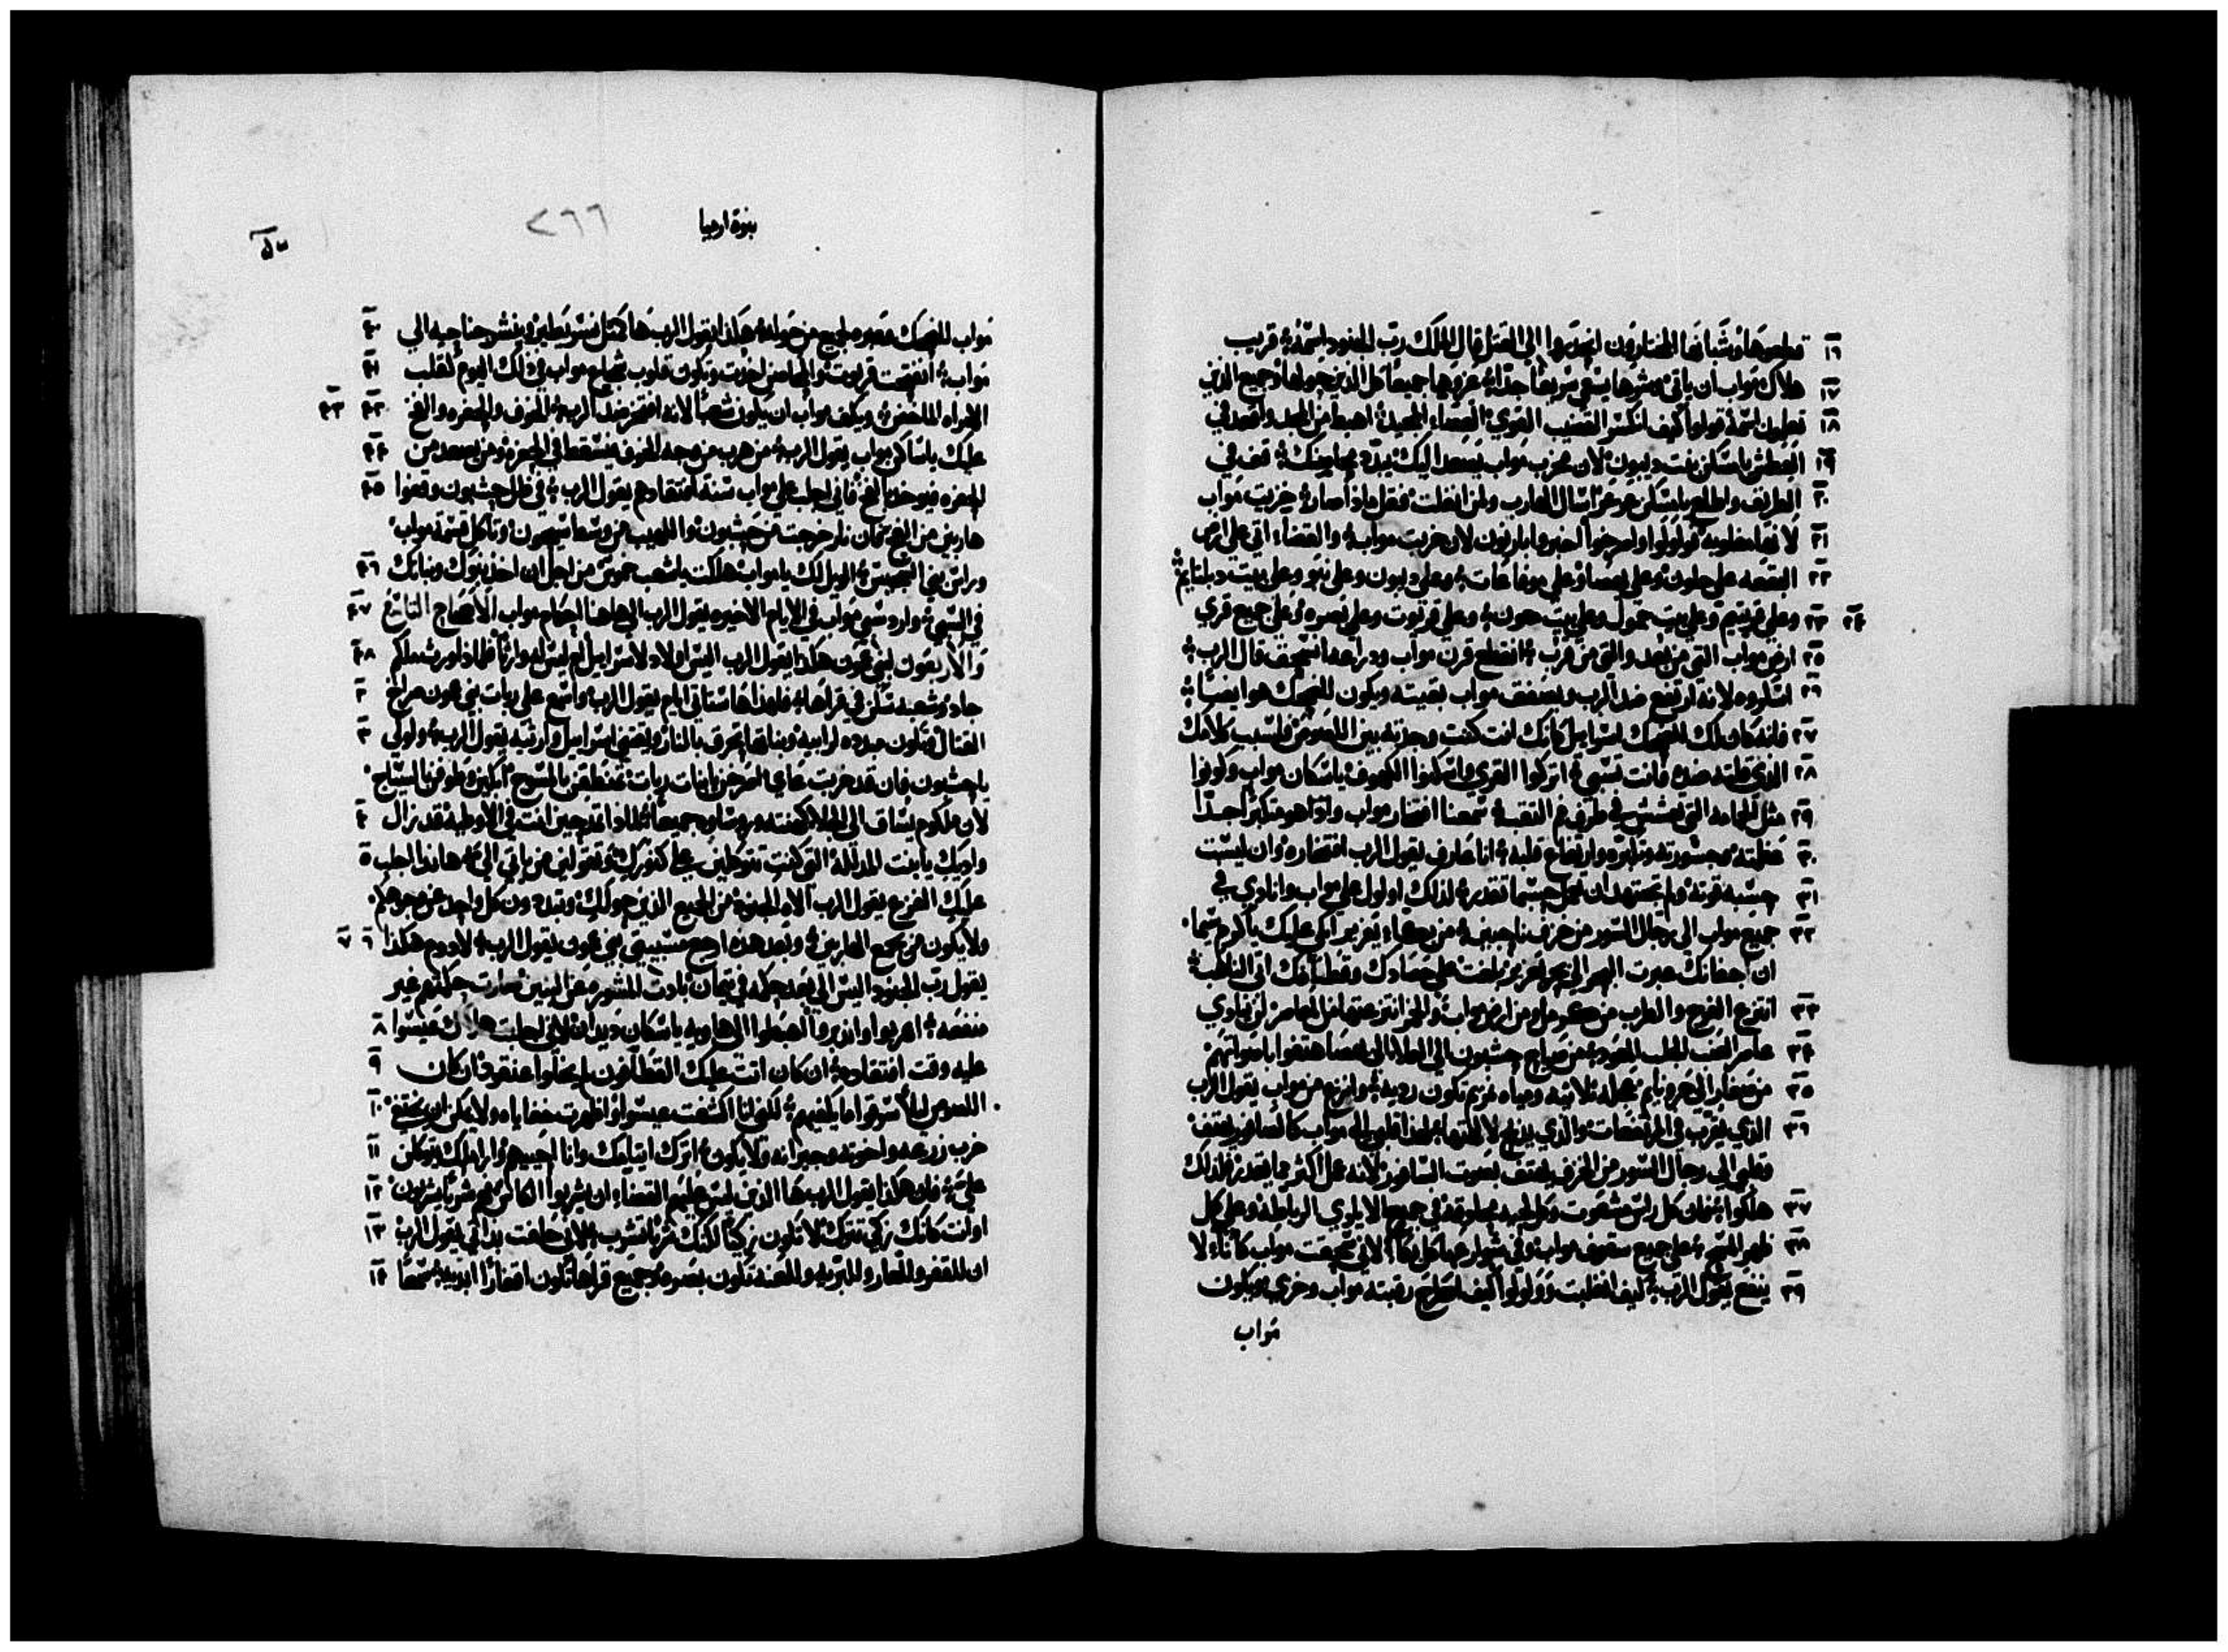 ١٦ قطعوها وشبانها المختارون انحدروا الي القتل قال الملك رب الجنود اسمه قريب
١٧ هلاك مواب ان ياتي وشرها يسعي سريعا جدا عزوها جميعا كل الذين حولها وجميع الذين
١٨ تعلمون اسمه قولوا كيف انكسر القضيب القوي العصاء المجيد اهبط من المجد واقعد في
١٩ العطش يا مسكن بنت ديبون لان مخرب مواب يصعد اليك يبدد محاصنك قف في
٢٠ الطريق واطلع يا مسكن عروعر اسال الهارب ولمن انفلت فقل ماذا صار خزيت مواب
٢١ لانها مغلوبه ولولوا واصرخوا اخبروا بارنون لان خربت مواب والقضاء اتي علي ارض
٢٢ البقعه علي حلون وعلي يهصا وعلي موفاعات وعلي ديبون وعلي نبو وعلي بيت دبلتايم
٢٣ وعلي قريتيم وعلي بيت جمول وعلي بيت معون وعلي قريوت وعلي بصره وعلي جميع قري ٢٤
٢٥ ارض مواب التي من بعد والتي من قرب انقطع قرن مواب ودراعه انسحق قال الرب
٢٦ اسكروه لانه ارتفع ضد الرب ويصفق مواب بقيته ويكون للضحك هو ايضا
٢٧ فانه كان لك للضحك اسراييل كانك انت كنت وجدته بين اللصوص فلسبب كلامك
٢٨ الذي قلته ضده فانت تسبي اتركوا القري واسكنوا الكهوف يا سكان مواب وكونوا
٢٩ مثل الحمامه التي تعشش في طرف فم النقب سمعنا افتخار مواب وانه هو متكبر جدا
٣٠ عظمته وجسورته وتكبره وارتفاع قلبه انا عارف يقول الرب افتخاره وان ليست
٣١ حسبه قوته ولم تجتهد ان تعمل حسبما تقدر لذلك اولول علي مواب وانادي في
٣٢ جميع مواب الي رجال السور من خزف ناحبين من بكاء يعزير ابكي عليك يا كرم سبما
ان اجفانك عبرت البحر الي بحر يعزير بلغت علي حصادك وقطافك اتي الناهب
٣٣ انتزع الفرح والطرب من كرمل ومن ارض مواب والخمر انتزعتها من المعاصر لن ينادي
٣٤ عاصر العنب من صراخ حشبون الي العلا الي يهصا هتفوا باصواتهم
٣٥ من صغار الي حورونايم عجله ثلاثيه ومياه نمريم تكون رديه وانزع من مواب يقول الرب
٣٦ الذي يقرب في المرتفعات والذي يذبح لالهتها لهذا قلبي الي مواب كالسافور يهتف
وقلبي الي رجال السور من الخزف يهتف بصوت السافور لانه عمل اكثر مما يقدر فلذلك
٣٧ هلكوا فان كل راس مشعوت وكل لحيه محلوقه في جميع الايادي الرباط وعلي كل
٣٨ ظهر المسح علي جميع سقوف مواب وفي شوارعها كل بكا لاني سحقت مواب كاناء لا
٣٩ ينفع يقول الرب كيف انغلبت وولولوا كيف اطرح رقبته مواب وخزي ويكون
مواب
نبوة ارميا
٢٦٦
مواب للضحك وعبره لجميع من حوله هكذا يقول الرب ها كمثل نسر يطير وينشر جناحيه الي ٤٠
مواب انفتحت قريوت والمحاصن اخذت وتكون قلوب شجعان مواب في ذلك اليوم كقلب ٤١
الامراه الماخض ويكف مواب ان يكون شعبا لانه افتخر ضد الرب الخوف والحفره والفخ ٤٢ ٤٣
عليك يا ساكن مواب يقول الرب من هرب من وجه الخوف فيسقط في الحفره ومن يصعد من ٤٤
الحفره فيوخذ بالفخ فاني اجلب علي مواب سنة افتقادهم يقول الرب في ظل حشبون وقفوا ٤٥
هاربين من الفخ فان نار خرجت من حشبون واللهيب من وسط سيحون وتاكل قسمة مواب
وراس بني الضجيج الويل لك يا مواب هلكت يا شعب كموش من اجل ان اخذ بنوك وبناتك ٤٦
في السبي واردد سبي مواب في الايام الاخيره يقول الرب الي هاهنا احكام مواب الاصحاح التاسع ٤٧
والاربعون لبني عمون هكذا يقول الرب اليس اولاد لاسراييل ام ليس له وارثا فلماذا ورث ملكم ٤٨
جاد وشعبه سكن في قراها فلهذا ها ستاتي ايام يقول الرب واسمع علي ربات بني عمون صراخ ٢
القتال وتكون مبدده لرابيه وبناتها تحرق بالنار ويقتني اسراييل وارثيه يقول الرب ولولي ٣
يا حشبون فان قد خربت عاي اصرخن يا بنات ربات تمنطقن بالمسوح ابكين وطوفن بالسياج
لان ملكوم يساق الي الجلا كهنته وروساوه جميعا لماذا تمدحين انت في الاوطيه فقد زال ٤
واديك يا بنت المدلله التي كنت تتوكلين علي كنوزك وتقولين من ياتي الي ها هاندا اجلب ٥
عليك الفزع يقول الرب الاه الجنود من الجميع الذين حولك وتبددون كل واحد عن وجوهكم
ولا يكون من يجمع الهاربين وبعد هذه ارجع مسبيي بني عمون يقول الرب لادوم هكذا ٦ ٧
يقول رب الجنود اليس الي بعد حكمه في تيمان بادت المشوره من البنين صارت حكمتهم غير
منفعه اهربوا وادبروا اهبطوا الي الهاويه يا سكان ديدان لاني اجلبت هلاك عيسوا ٨
عليه وقت افتقاده ان كان اتت عليك القطافون لم يخلوا عنقود ان كان ٩
اللصوص ليلا سرقوا ما يكفيهم لكني انا اكشفت عيسوا واظهرت خفاياه ولا يمكن ان يختفي ١٠
خرب زرعه واخوته وجيرانه ولا يكون اترك ايتامك وانا احييهم واراملك يتوكلن ١١
علي فان هكذا يقول الرب ها الذين ليس عليهم القضاء ان يشربوا الكاس فهم شربا يشربون ١٢
او انت كانك زكي تترك لا تكون زكيا لكنك شربا تشرب لاني حلفت بذاتي يقول الرب ١٣
ان للقفر وللعار وللبريه وللعنه تكون بصره وجميع قراها تكون اقفارا ابديه سمعا ١٤